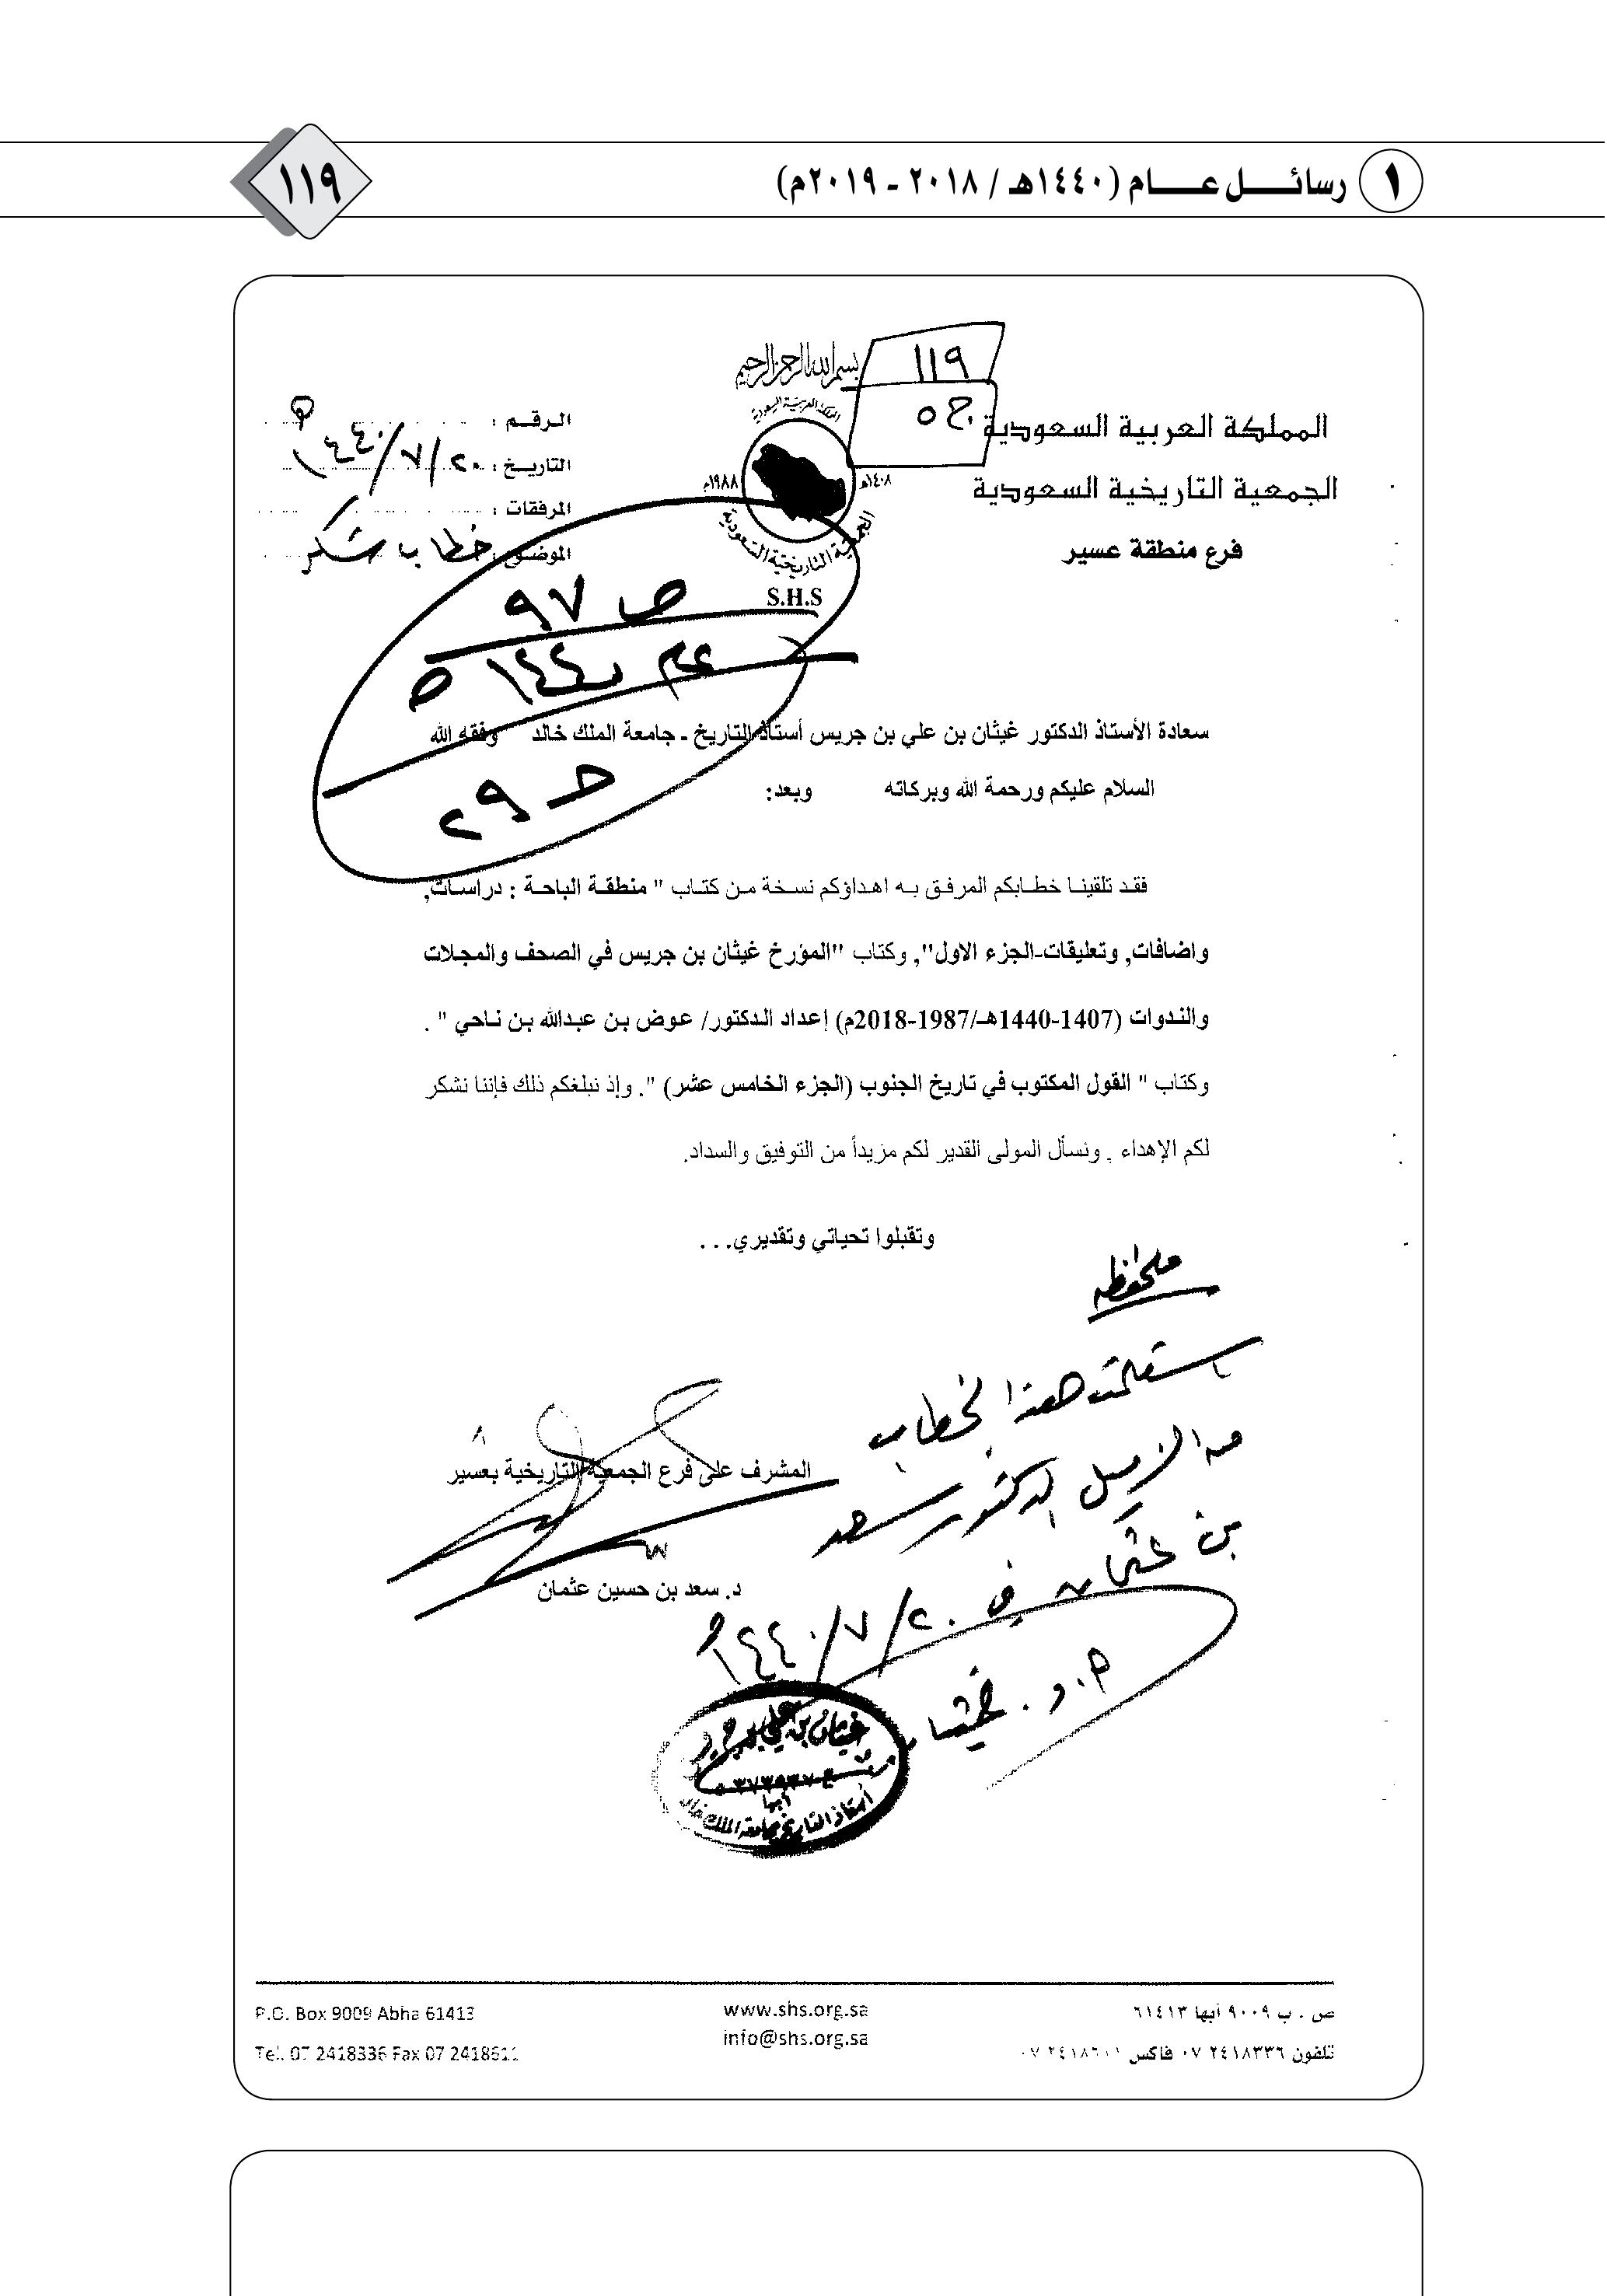 ١ رسائل عام (١٤٤٠هـ / ٢٠١٨ - ٢٠١٩م)
١١٩
بسم الله الرحمن الرحيم
١١٩
ج ٥
المملكة العربية السعودية
الجمعية التاريخية السعودية
فرع منطقة عسير
المملكة العربية السعودية
١٤٠٨هـ
١٩٨٨م
الجمعية التاريخية السعودية
S.H.S
الرقم :
التاريخ : ٢٠/٧/١٤٤٠هـ
المرفقات :
الموضوع : خطاب شكر
ص ٩٧
عام ١٤٤٠هـ
حـ ٢٩
سعادة الأستاذ الدكتور غيثان بن علي بن جريس أستاذ التاريخ - جامعة الملك خالد وفقه الله
السلام عليكم ورحمة الله وبركاته وبعد:
فقد تلقينا خطابكم المرفق به اهداؤكم نسخة من كتاب " منطقة الباحة : دراسات,
واضافات, وتعليقات-الجزء الاول", وكتاب "المؤرخ غيثان بن جريس في الصحف والمجلات
والندوات (1407-1440هـ/1987-2018م) إعداد الدكتور/ عوض بن عبدالله بن ناحي " .
وكتاب " القول المكتوب في تاريخ الجنوب (الجزء الخامس عشر) ". وإذ نبلغكم ذلك فإننا نشكر
لكم الإهداء . ونسأل المولى القدير لكم مزيداً من التوفيق والسداد.
وتقبلوا تحياتي وتقديري...
ملحوظه
استلمت هذا الخطاب
من الزميل الدكتور سعد
بن عثمان في ٢٠/٧/١٤٤٠هـ
أ.د. غيثان
المشرف على فرع الجمعية التاريخية بعسير
د. سعد بن حسين عثمان
غيثان بن علي بن جريس
أبها
أستاذ التاريخ بجامعة الملك خالد
ص . ب ٩٠٠٩ أبها ٦١٤١٣
تلفون ٢٤١٨٣٣٦ ٠٧ فاكس
www.shs.org.sa
info@shs.org.sa
P.O. Box 9009 Abha 61413
Tel. 07 2418336 Fax 07